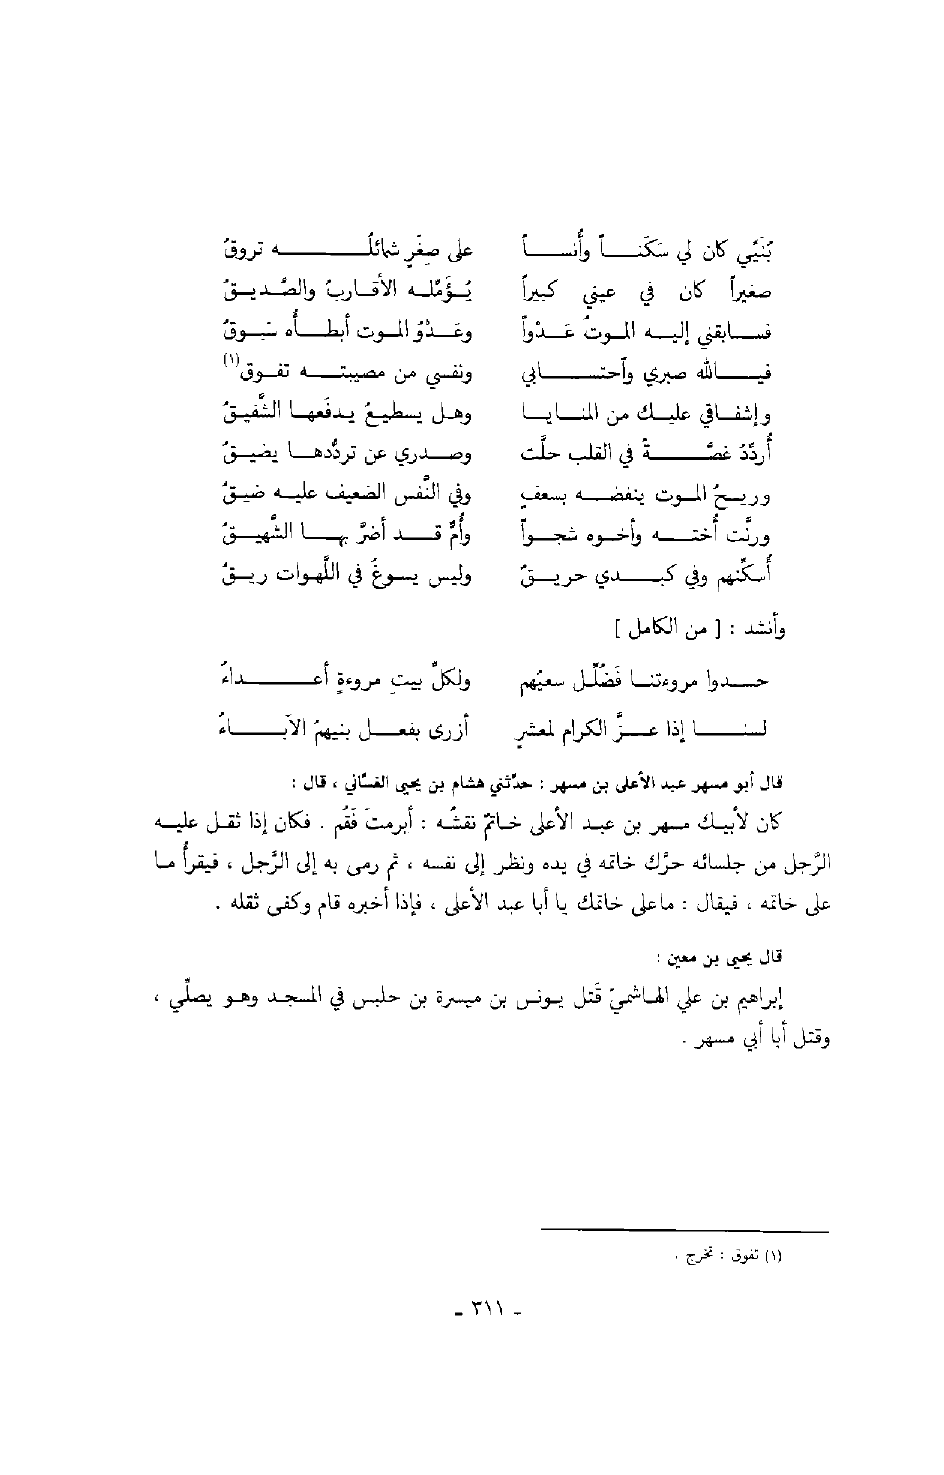 بُنَيّي كان لي سَكَنـاً وأُنسـاً على صِغَرٍ شمائلُـه تروقُ
صغيراً كان في عيني كبيراً يُؤمّلـه الأقـاربُ والصَّديـقُ
فسـابقني إليـه المـوتُ عَـدْواً وعَـدْوُ الموت أبطـأه سَبوقُ
فيـالله صبري وأحتسـابي ونفسي من مصيبتـه تفـوق(١)
وإشفـاقي عليـك من المنـايـا وهـل يسطيـعُ يـدفَعهـا الشَّفيـقُ
أُردّدُ غصّـةً في القلب حلَّت وصـدري عن تردُّدهـا يضيـقُ
وريـحُ المـوت ينفضـه بسعفٍ وفي النَّفس الضعيف عليـه ضيـقُ
ورنَّت أُختـه وأخـوه شجـواً وأُمّ قـد أضرَّ بهـا الشَّهيـقُ
أُسكّنهم وفي كبـدي حريـقٌ وليس يسوغُ في اللَّهوات ريـقُ
وأنشد : [ من الكامل ]
حـدوا مروءتنـا فَضُلِّل سعيُهم ولكلّ بيتِ مروءةٍ أعـداءُ
لسنـا إذا عـزَّ الكرام لمعشرٍ أزرى بفعـل بنيهمُ الآبـاءُ
قال أبو مسهر عبد الأعلى بن مسهر : حدّثني هشام بن يحيى الغسّاني ، قال :
كان لأبيـك مسهر بن عبد الأعلى خاتمٌ نقشُه : أبرمتَ فَقُم . فكان إذا ثقـل عليـه
الرَّجل من جلسائه حرَّك خاتمه في يده ونظر إلى نفسه ، ثم رمى به إلى الرَّجل ، فيقرأُ مـا
على خاتمه ، فيقال : ماعلى خاتمك يا أبا عبد الأعلى ، فإذا أخبره قام وكفى ثقله .
قال يحيى بن معين :
إبراهيم بن علي الهاشميّ قَتل يونس بن ميسرة بن حلبس في المسجد وهو يصلّي ،
وقتل أبا أبي مسهر .
(١) تفوق : تخرج .
ـ ٣١١ ـ